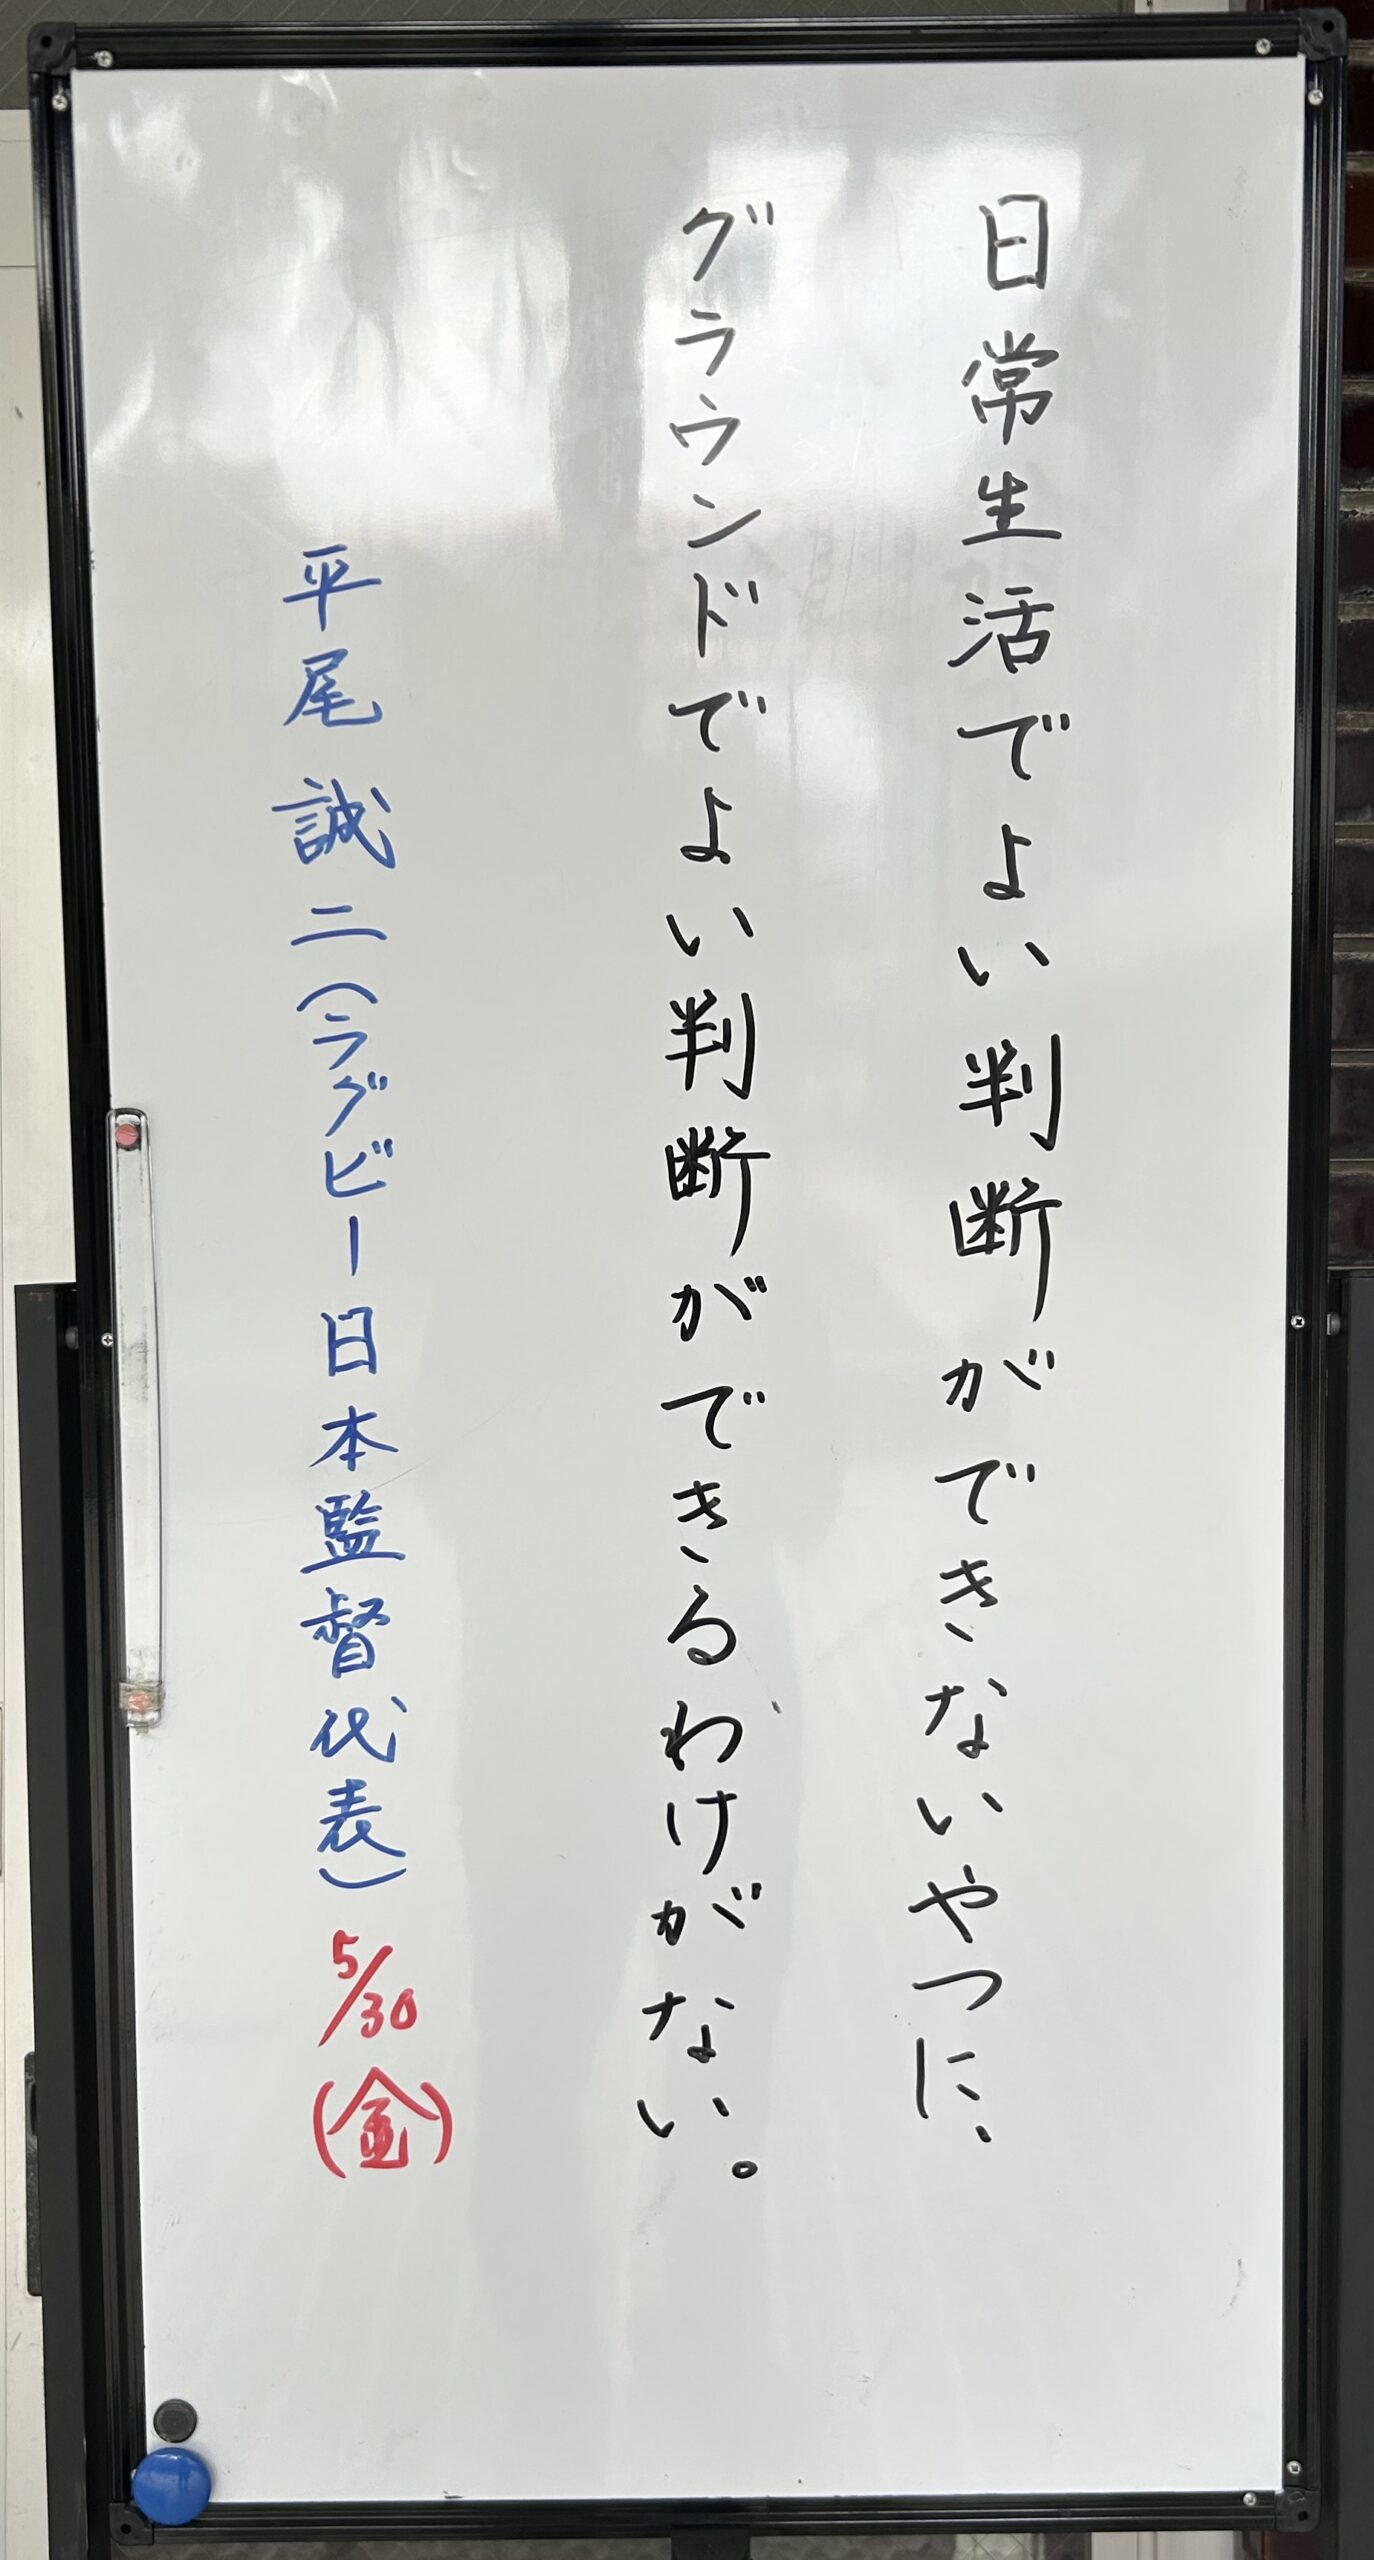 日常生活でよい判断ができないやつに、
グラウンドでよい判断ができるわけがない。
平尾誠二(ラグビー日本監督代表) 5/30(金)